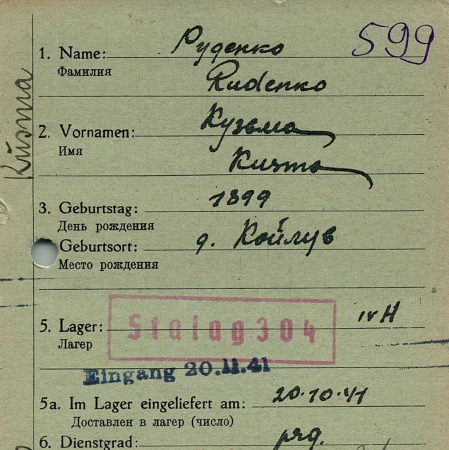 599
1. Name: Руденко
Фамилия
Rudenko
2. Vornamen: Кузьма
Имя
Kusma
3. Geburtstag: 1899
День рождения
Geburtsort: д. Койлув
Место рождения
5. Lager: Stalag 304 IV H
Лагер
Eingang 20.11.41
5a. Im Lager eingeliefert am: 20.10.41
Доставлен в лагер (число)
6. Dienstgrad: